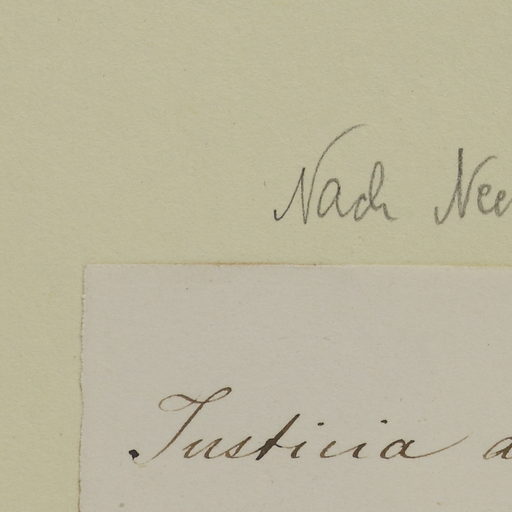 Nach Nee
Justicia a